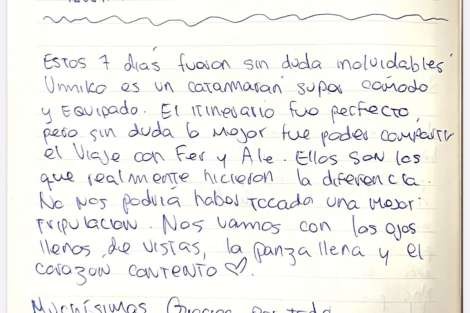 Estos 7 días fueron sin duda inolvidables
Unmiko es un catamarán super cómodo
y EQUIPADO. El itinerario fue perfecto,
pero sin duda lo mejor fue poder compartir
el viaje con Fer y Ale. Ellos son los
que realmente hicieron la diferencia.
No nos podría haber tocado una mejor
tripulación. Nos vamos con los ojos
llenos de vistas, la panza llena y el
corazón contento ♡.
Muchísimas Gracias por todo